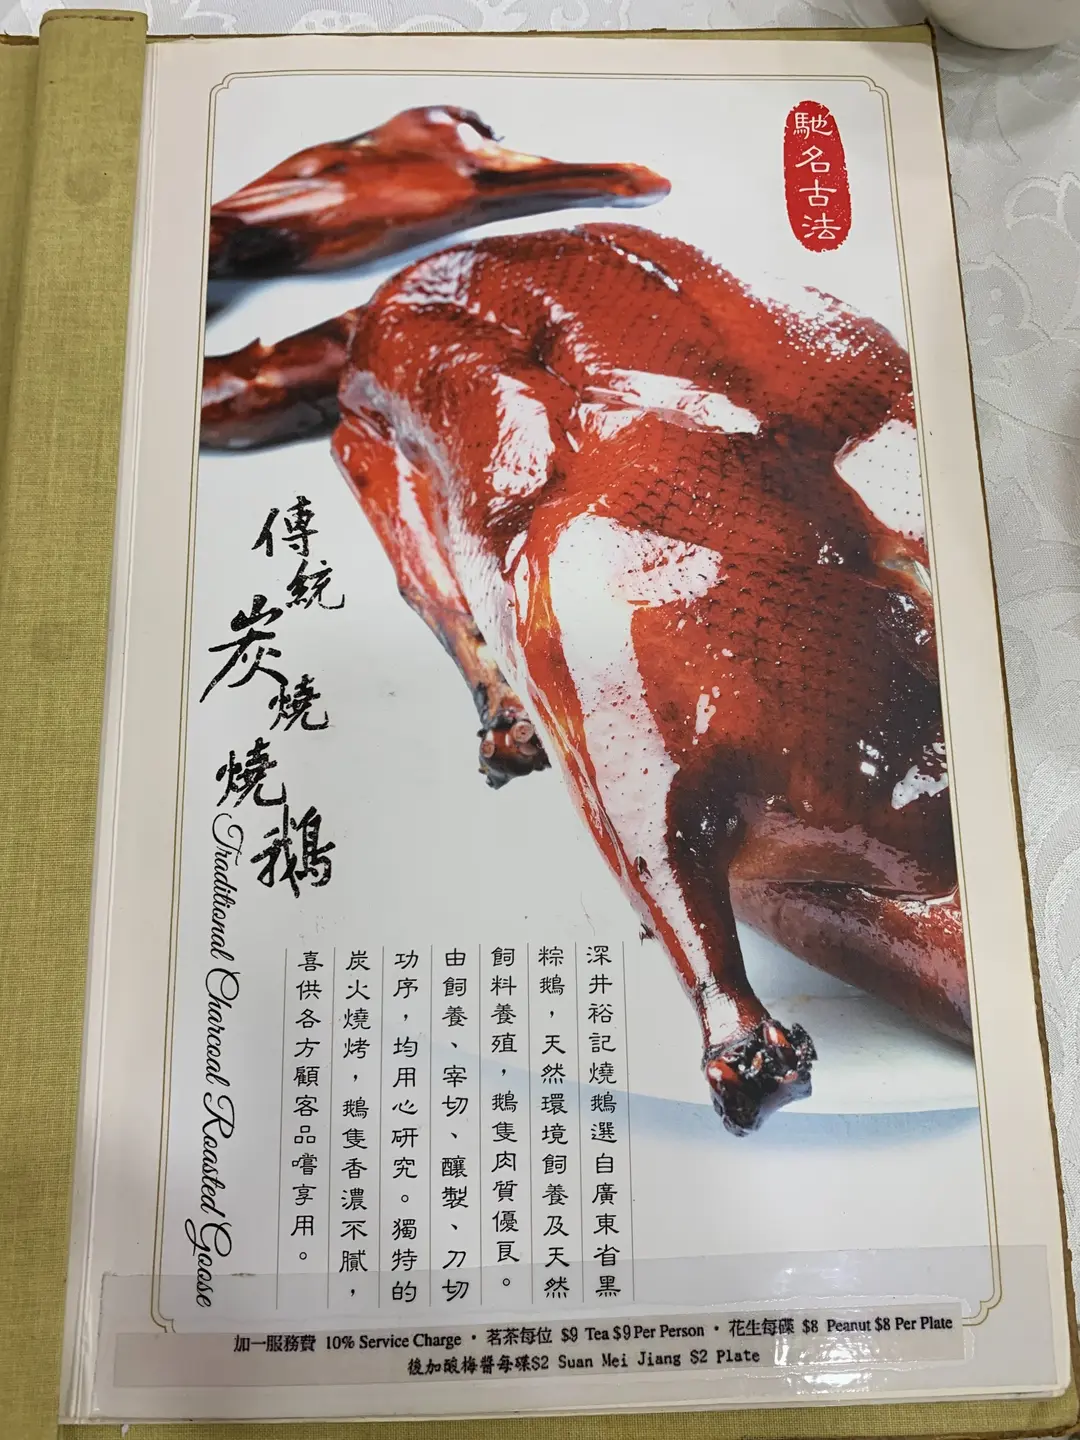 馳名古法
傳統炭燒燒鵝
Traditional Charcoal Roasted Goose
深井裕記燒鵝選自廣東省黑
粽鵝，天然環境飼養及天然
飼料養殖，鵝隻肉質優良。
由飼養、宰切、釀製、刀切
功序，均用心研究。獨特的
炭火燒烤，鵝隻香濃不膩，
喜供各方顧客品嚐享用。
加一服務費 10% Service Charge · 茗茶每位 $9 Tea $9 Per Person · 花生每碟 $8 Peanut $8 Per Plate
後加酸梅醬每碟$2 Suan Mei Jiang $2 Plate